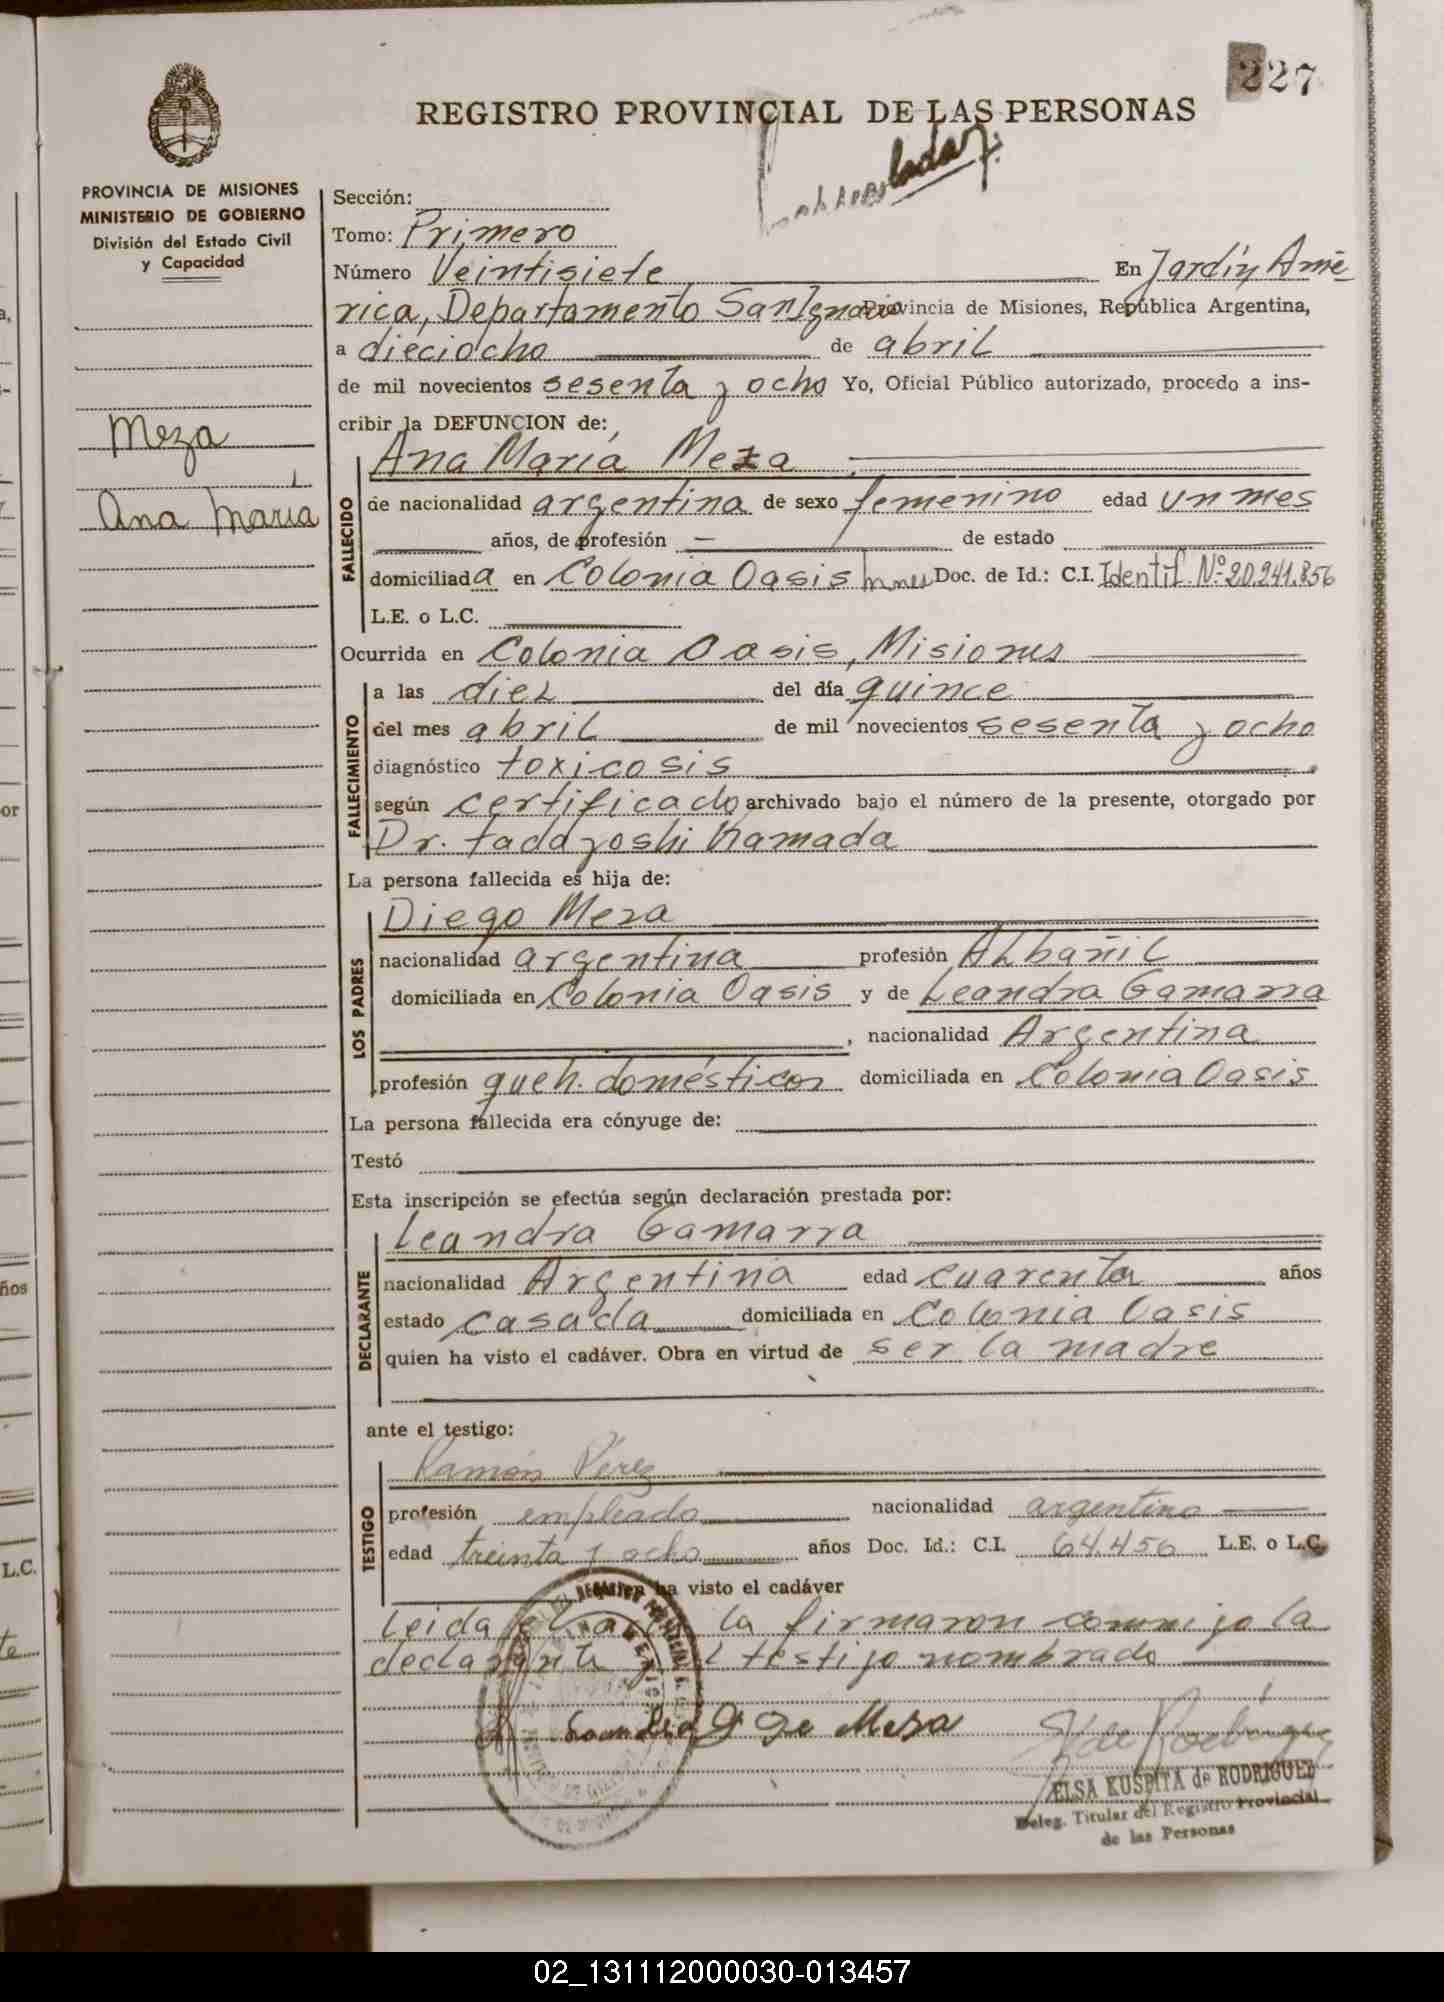 227
REGISTRO PROVINCIAL DE LAS PERSONAS
PROVINCIA DE MISIONES
MINISTERIO DE GOBIERNO
División del Estado Civil
y Capacidad
Meza
Ana María
Sección:
Tomo: Primero
Número Veintisiete En Jardín Amé-
rica, Departamento San Ignacio Provincia de Misiones, República Argentina,
a dieciocho de abril
de mil novecientos sesenta y ocho Yo, Oficial Público autorizado, procedo a ins-
cribir la DEFUNCION de:
Ana María Meza
FALLECIDO
de nacionalidad argentina de sexo femenino edad un mes
años, de profesión — de estado
domiciliada en Colonia Oasis Mnes Doc. de Id.: C.I. Identif. Nº 20.241.856
L.E. o L.C.
Ocurrida en Colonia Oasis, Misiones
FALLECIMIENTO
a las diez del día quince
del mes abril de mil novecientos sesenta y ocho
diagnóstico toxicosis
según certificado archivado bajo el número de la presente, otorgado por
Dr. Tadayoshi Kamada
La persona fallecida es hija de:
LOS PADRES
Diego Meza
nacionalidad argentina profesión Albañil
domiciliada en Colonia Oasis y de Leandra Gamarra
, nacionalidad Argentina
profesión queh. domésticos domiciliada en Colonia Oasis
La persona fallecida era cónyuge de:
Testó
Esta inscripción se efectúa según declaración prestada por:
DECLARANTE
Leandra Gamarra
nacionalidad Argentina edad cuarenta años
estado casada domiciliada en Colonia Oasis
quien ha visto el cadáver. Obra en virtud de ser la madre
ante el testigo:
TESTIGO
Ramón Pérez
profesión empleado nacionalidad argentina
edad treinta y ocho años Doc. Id.: C.I. 64.456 L.E. o L.C.
quien ha visto el cadáver
Leida el acta la firmaron conmigo la
declarante y el testigo nombrado
G de Meza
ELSA KUSPITA de RODRIGUEZ
Deleg. Titular del Registro Provincial
de las Personas
ños
L.C.
02_131112000030-013457